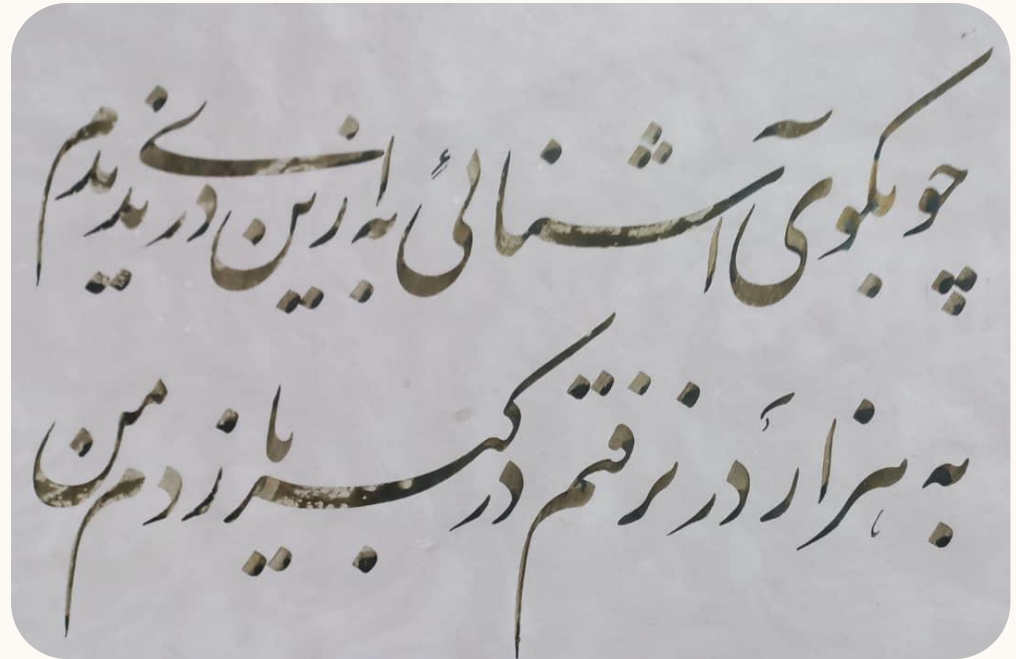 چو بکوی آشنائی به ازین دری ندیدم
به هزار در نرفتم در کبریا زدم من